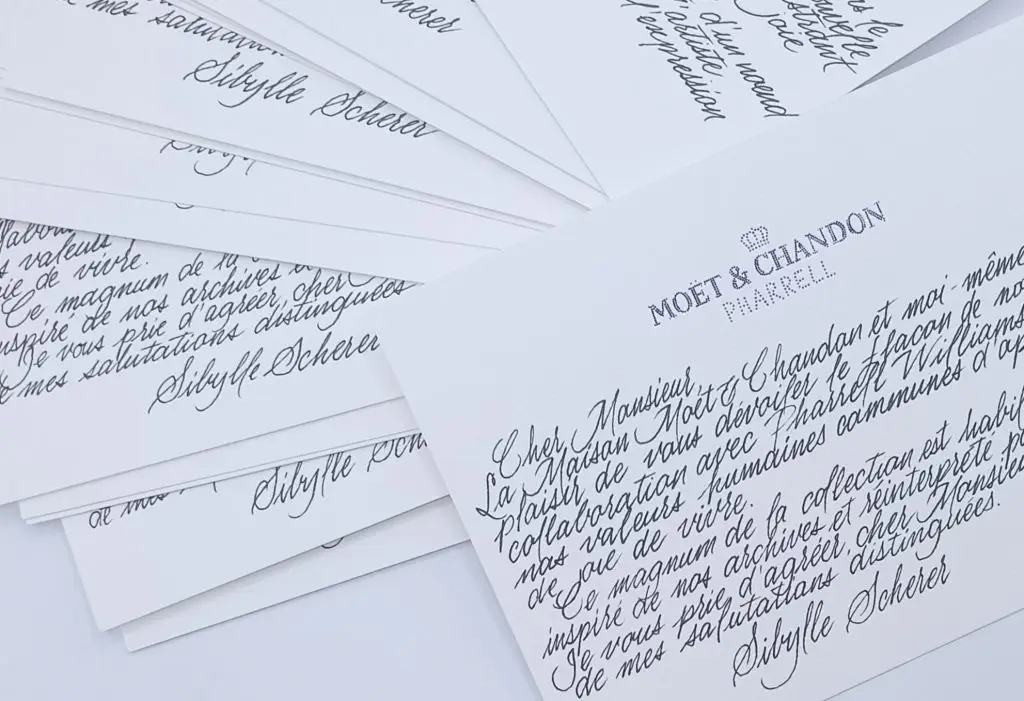 Scherer
Sibylle Scherer
d'un noeud
artiste
l'expression
valeurs
de vivre.
Ce magnum de la
inspire de nos archives
Je vous prie d'agréer, cher
de mes salutations distinguées
Sibylle Scherer
de mes
Sibylle
MOËT & CHANDON
PHARRELL
Cher Monsieur,
La Maison Moët & Chandon et moi-même
plaisir de vous dévoiler le flacon de
collaboration avec Pharrell Williams
nos valeurs humaines communes
de joie de vivre.
Ce magnum de la collection est
inspiré de nos archives et réinterprété
Je vous prie d'agréer, cher Monsieur
de mes salutations distinguées.
Sibylle Scherer